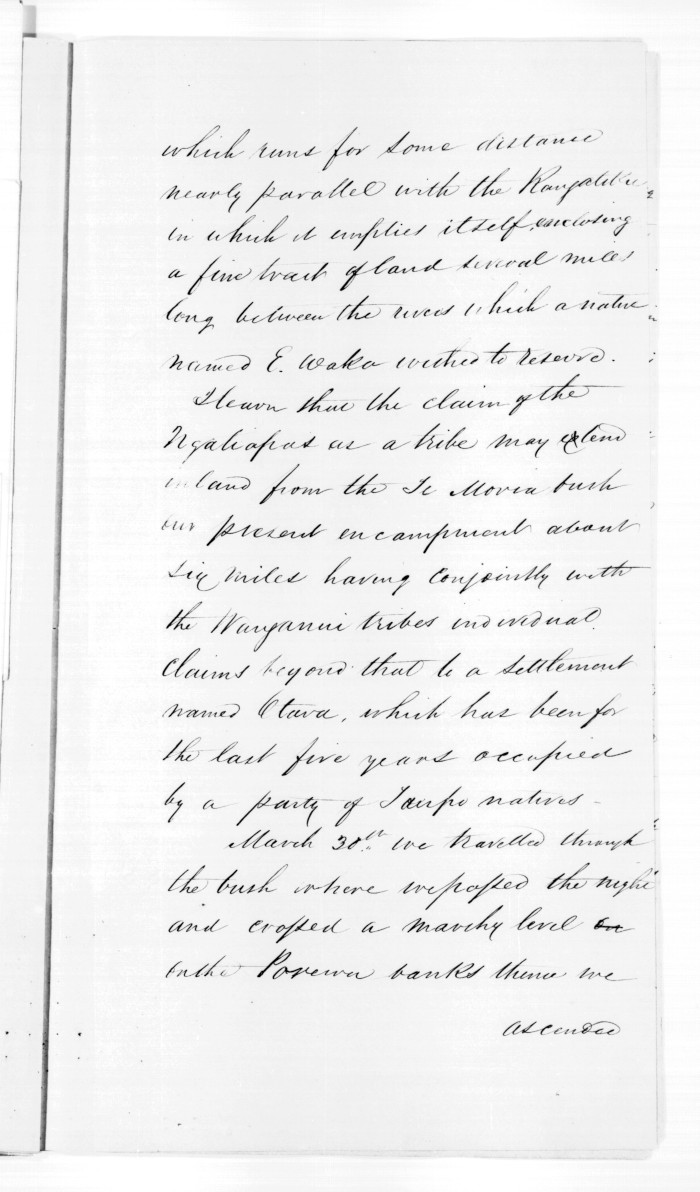 which runs for some distance
nearly parallel with the Rangatikie
in which it emplies itself, enclosing
a fine tract of land several miles
long between the rivers which a native
named E. Waka wished to reserve.
I learn that the claim of the
Ngatiapas as a tribe may extend
inland from the Te Moria bush
our present encampment about
six miles having conjointly with
the Wanganui tribes individual
claims beyond that to a settlement
named Otara, which has been for
the last five years occupied
by a party of Taupo natives –
March 30th we travelled through
the bush where we passed the night
and crossed a marshy level
on the Porewa banks thence we
ascended